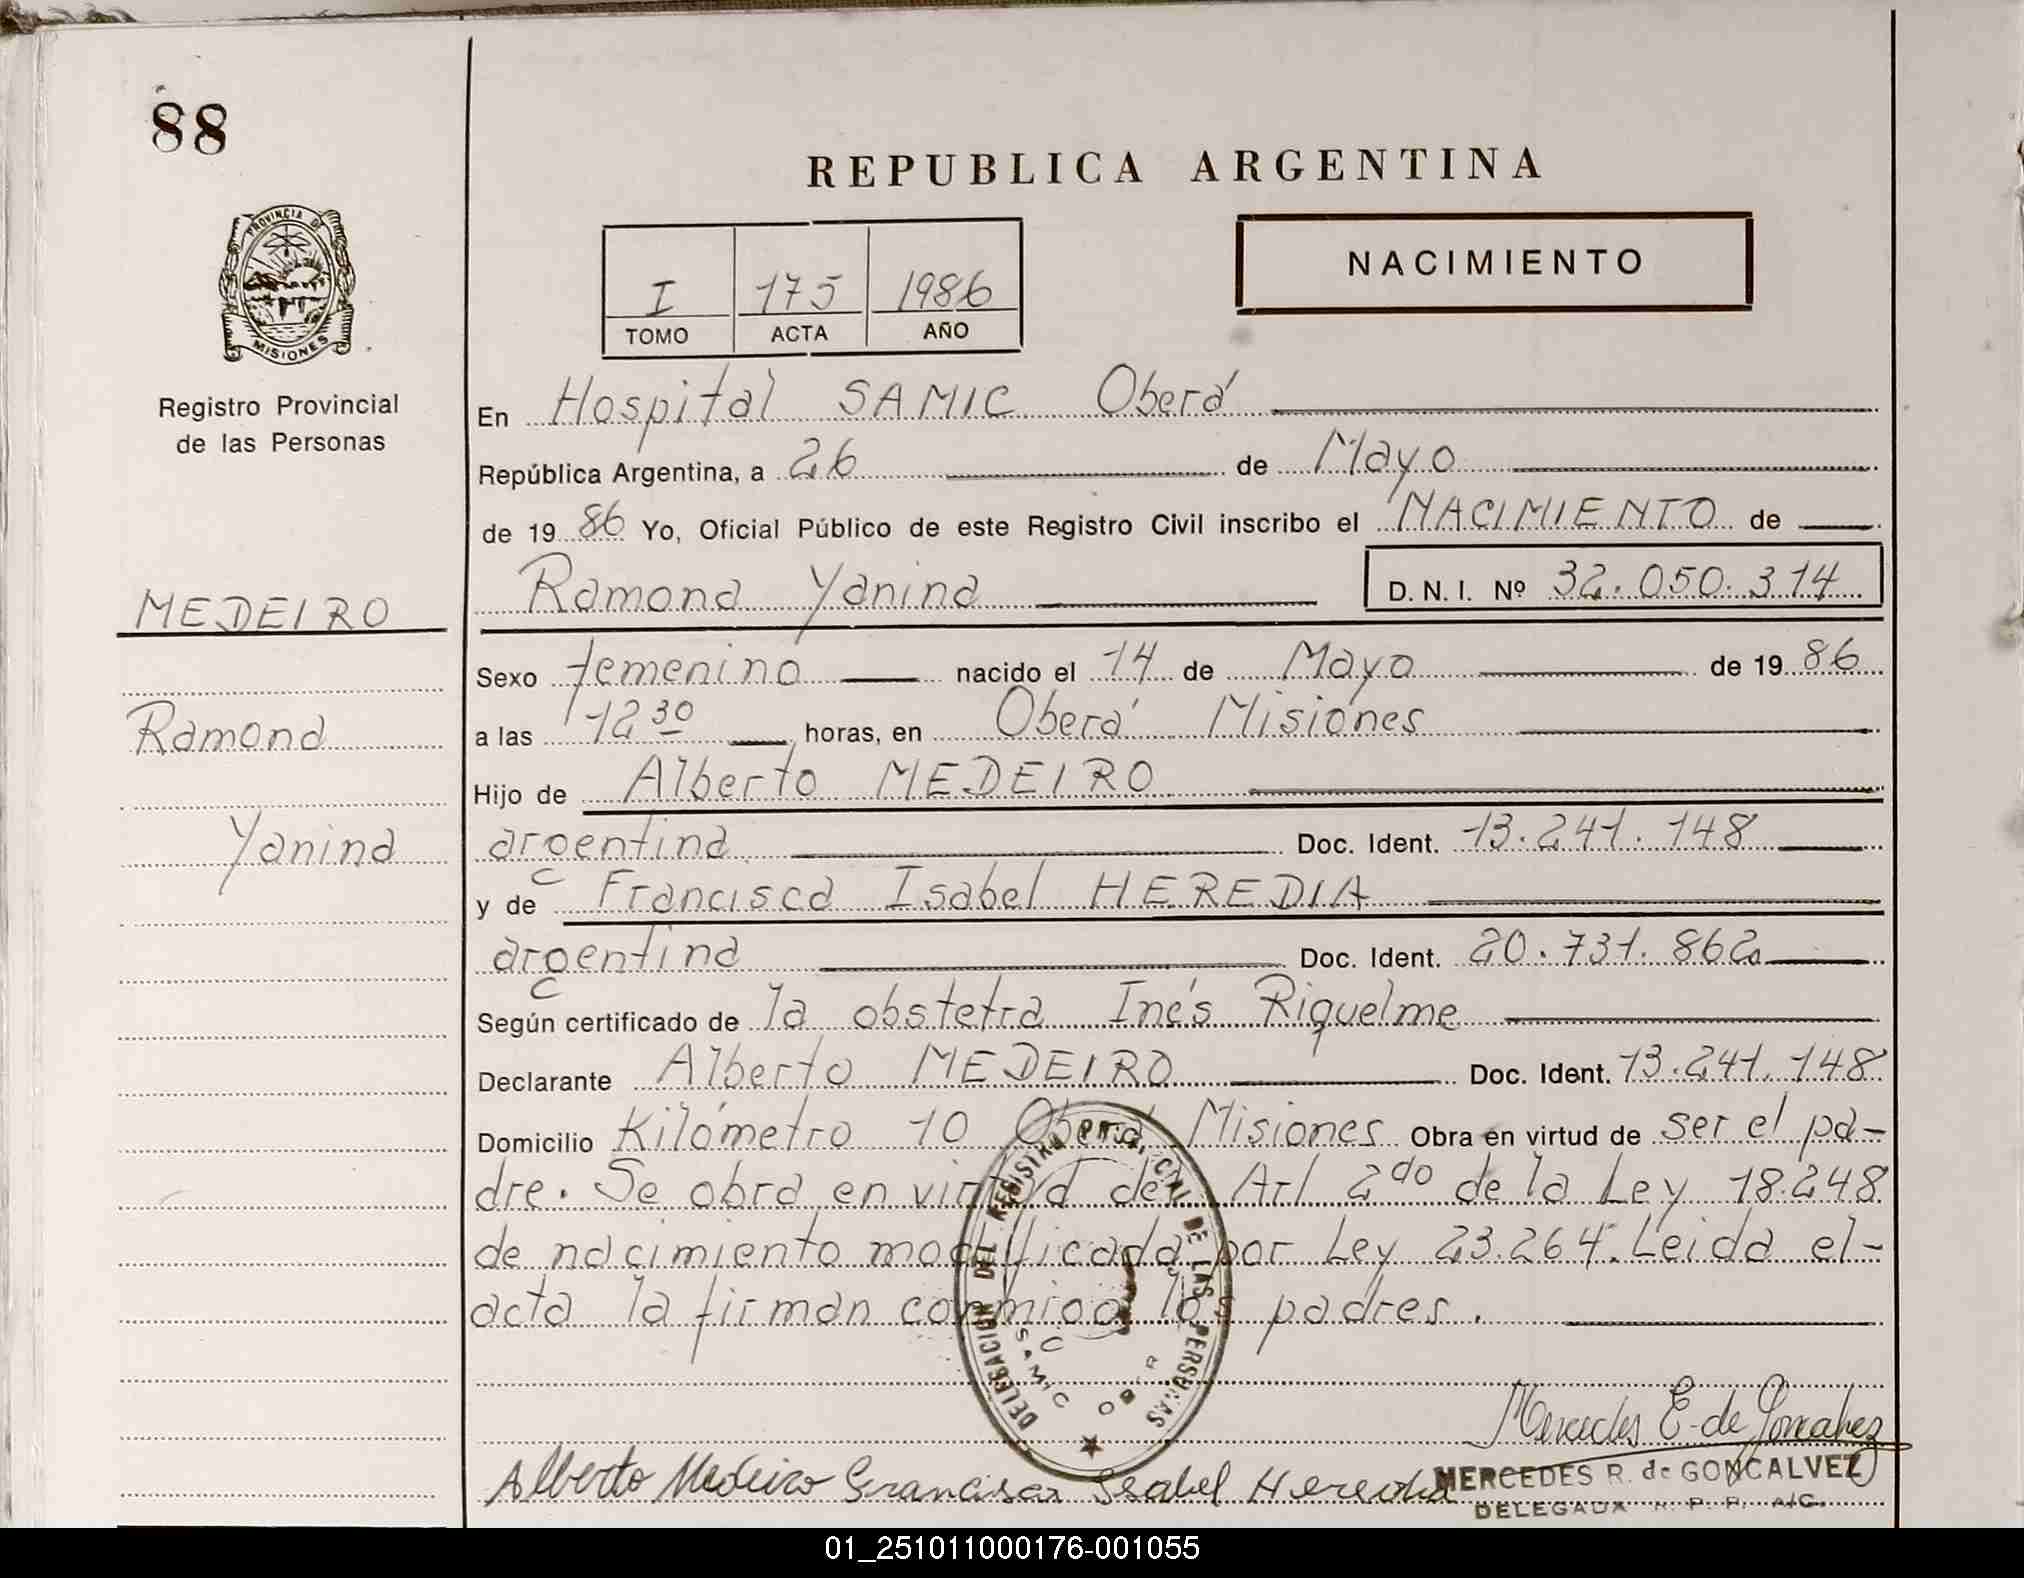 88
REPUBLICA ARGENTINA
PROVINCIA DE
MISIONES
Registro Provincial
de las Personas
I 175 1986
TOMO ACTA AÑO
NACIMIENTO
En Hospital SAMIC Oberá
República Argentina, a 26 de Mayo
de 1986 Yo, Oficial Público de este Registro Civil inscribo el NACIMIENTO de
Ramona Yanina D. N. I. Nº 32.050.314
MEDEIRO
Ramona
Yanina
Sexo femenino nacido el 14 de Mayo de 1986
a las 12 30 horas, en Oberá Misiones
Hijo de Alberto MEDEIRO
argentina Doc. Ident. 13.241.148
y de Francisca Isabel HEREDIA
argentina Doc. Ident. 20.731.862
Según certificado de la obstetra Inés Riquelme
Declarante Alberto MEDEIRO Doc. Ident. 13.241.148
Domicilio Kilómetro 10 Oberá Misiones Obra en virtud de ser el pa-
dre. Se obra en virtud del Art 2do de la Ley 18.248
de nacimiento modificada por Ley 23.264. Leida el-
acta la firman conmigo los padres.
DELEGACION DEL REGISTRO PROVINCIAL DE LAS PERSONAS
SAMIC
Mercedes E. de Goncalvez
Alberto Medeiro Francisca Isabel Heredia
MERCEDES R. de GONCALVEZ
DELEGADA R. P. P. A/C.
01_251011000176-001055